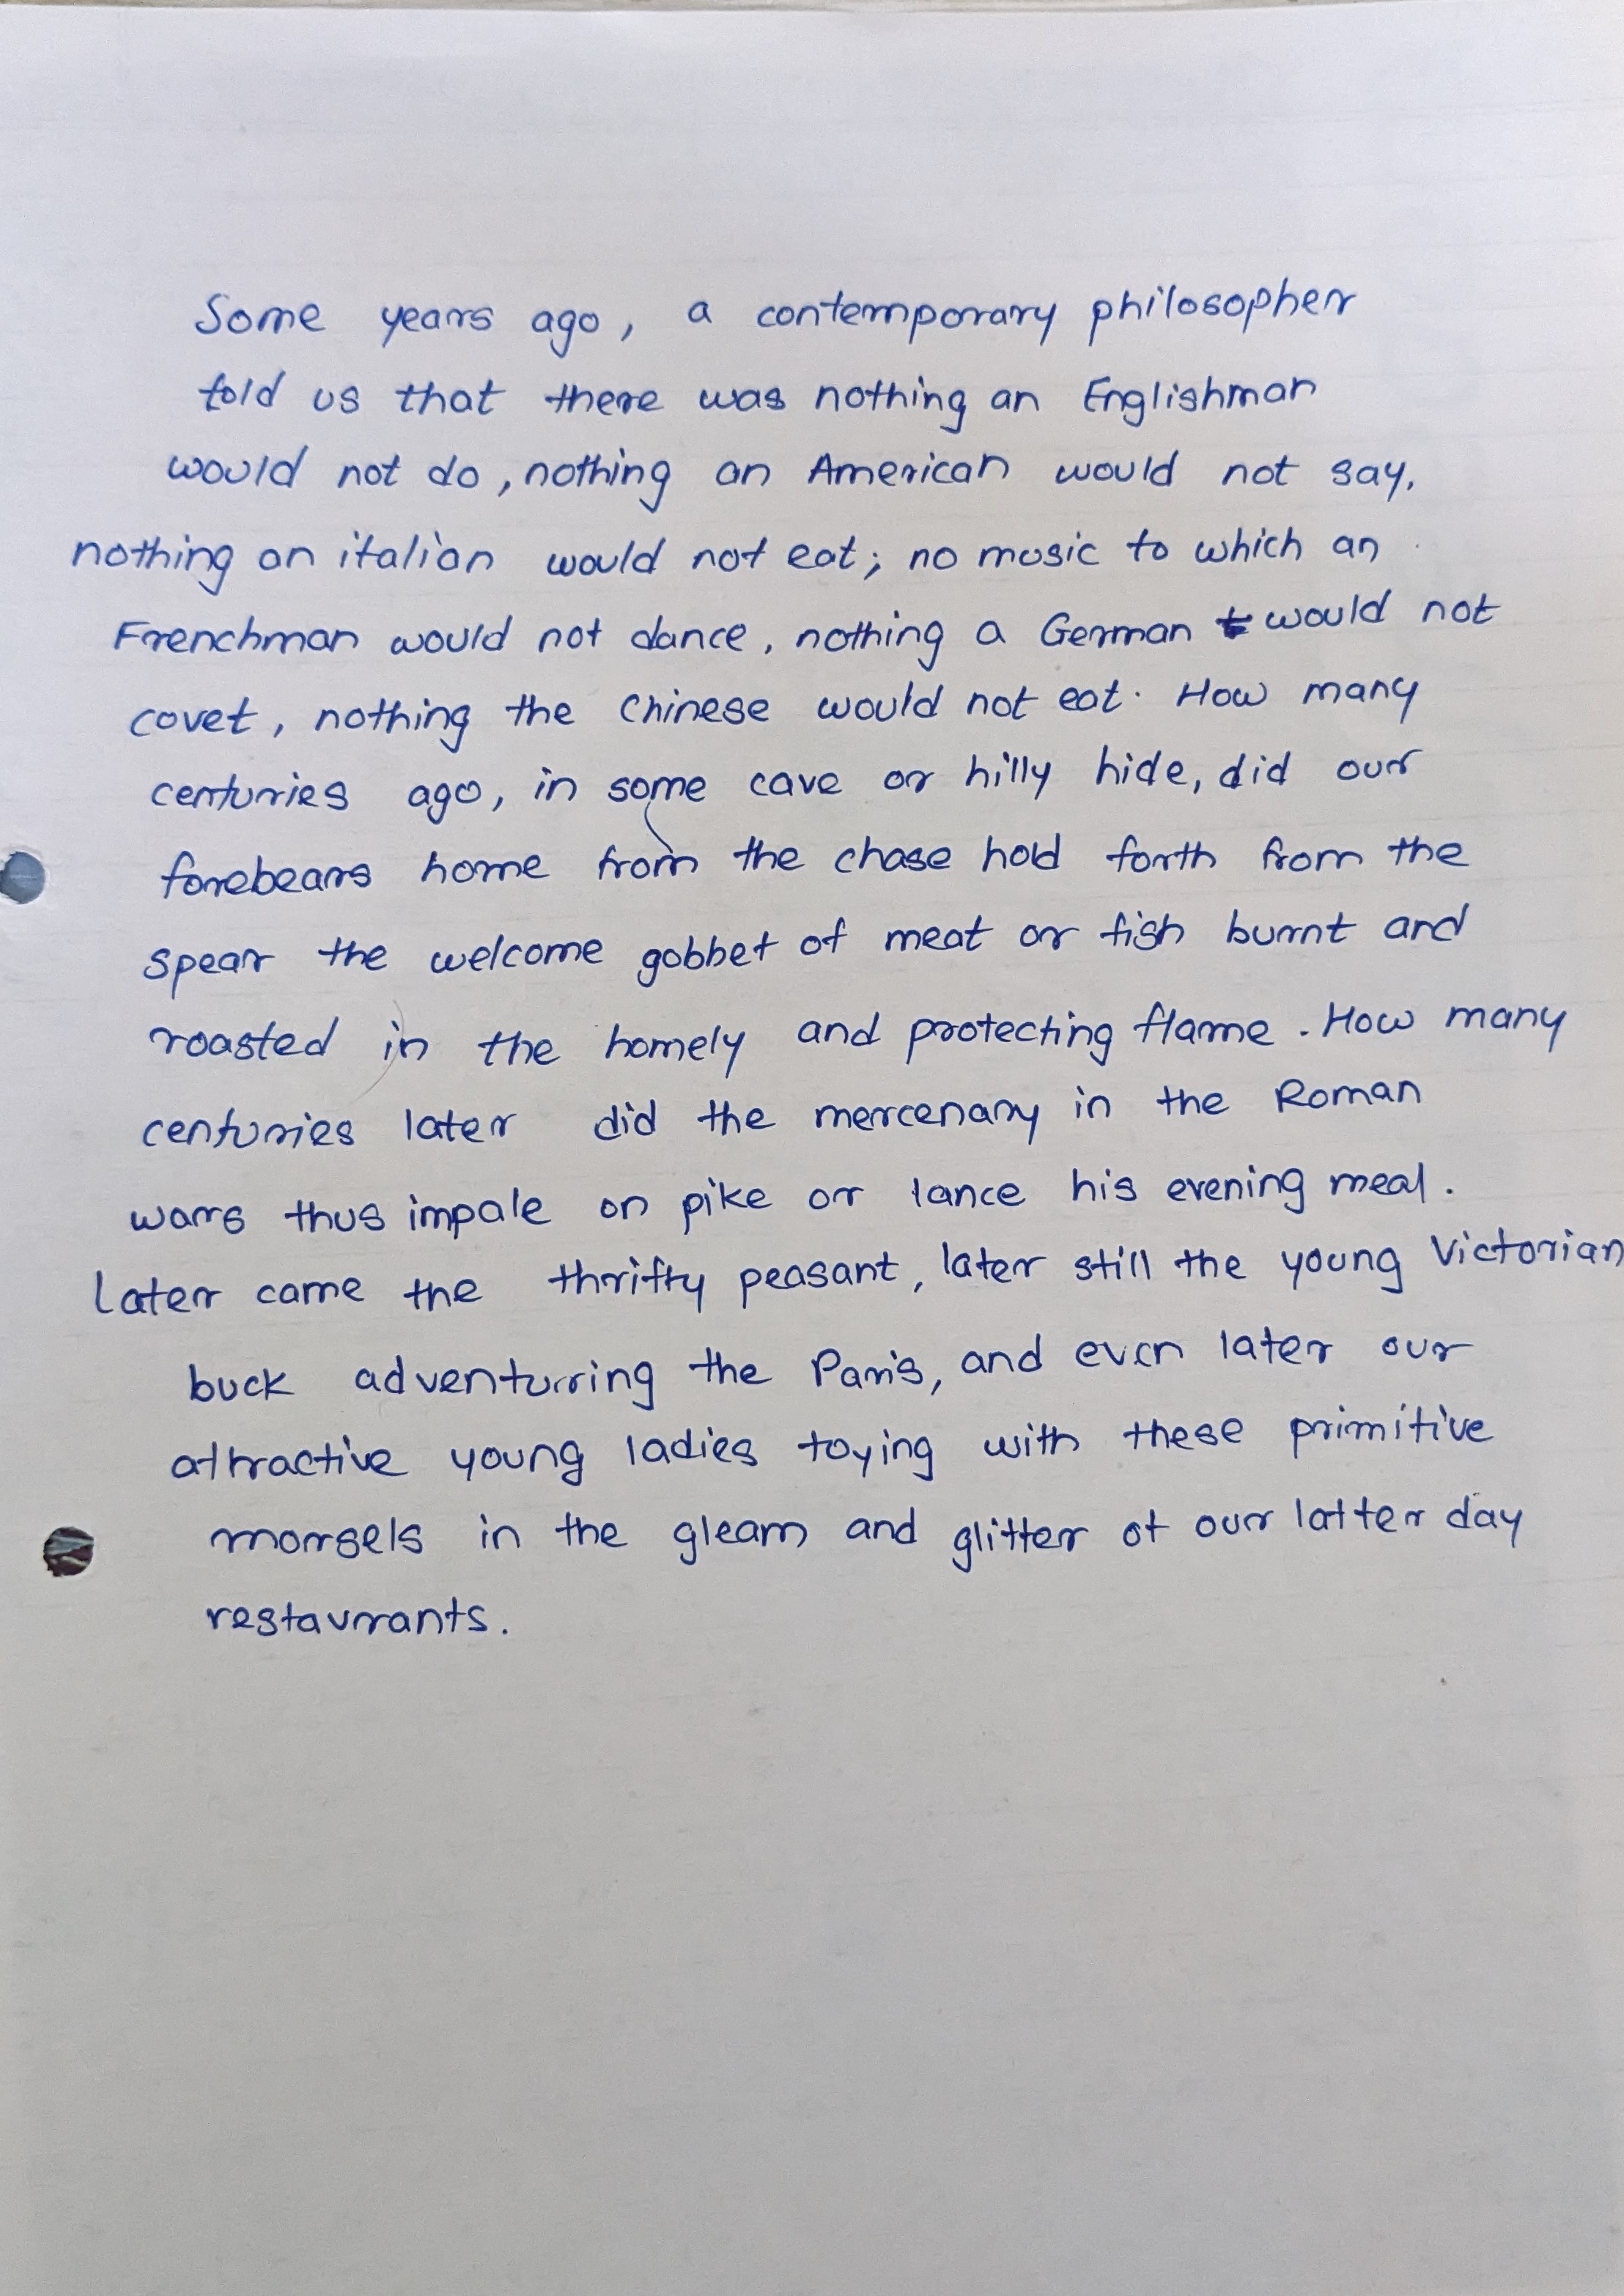 Some years ago, a contemporary philosopher
told us that there was nothing an Englishman
would not do, nothing an American would not say,
nothing an italian would not eat; no music to which an
Frenchman would not dance, nothing a German would not
covet, nothing the Chinese would not eat. How many
centuries ago, in some cave or hilly hide, did our
forebears home from the chase hold forth from the
spear the welcome gobbet of meat or fish burnt and
roasted in the homely and protecting flame. How many
centuries later did the mercenary in the Roman
wars thus impale on pike or lance his evening meal.
Later came the thrifty peasant, later still the young Victorian
buck adventurring the Paris, and even later our
attractive young ladies toying with these primitive
morsels in the gleam and glitter of our latter day
restaurants.